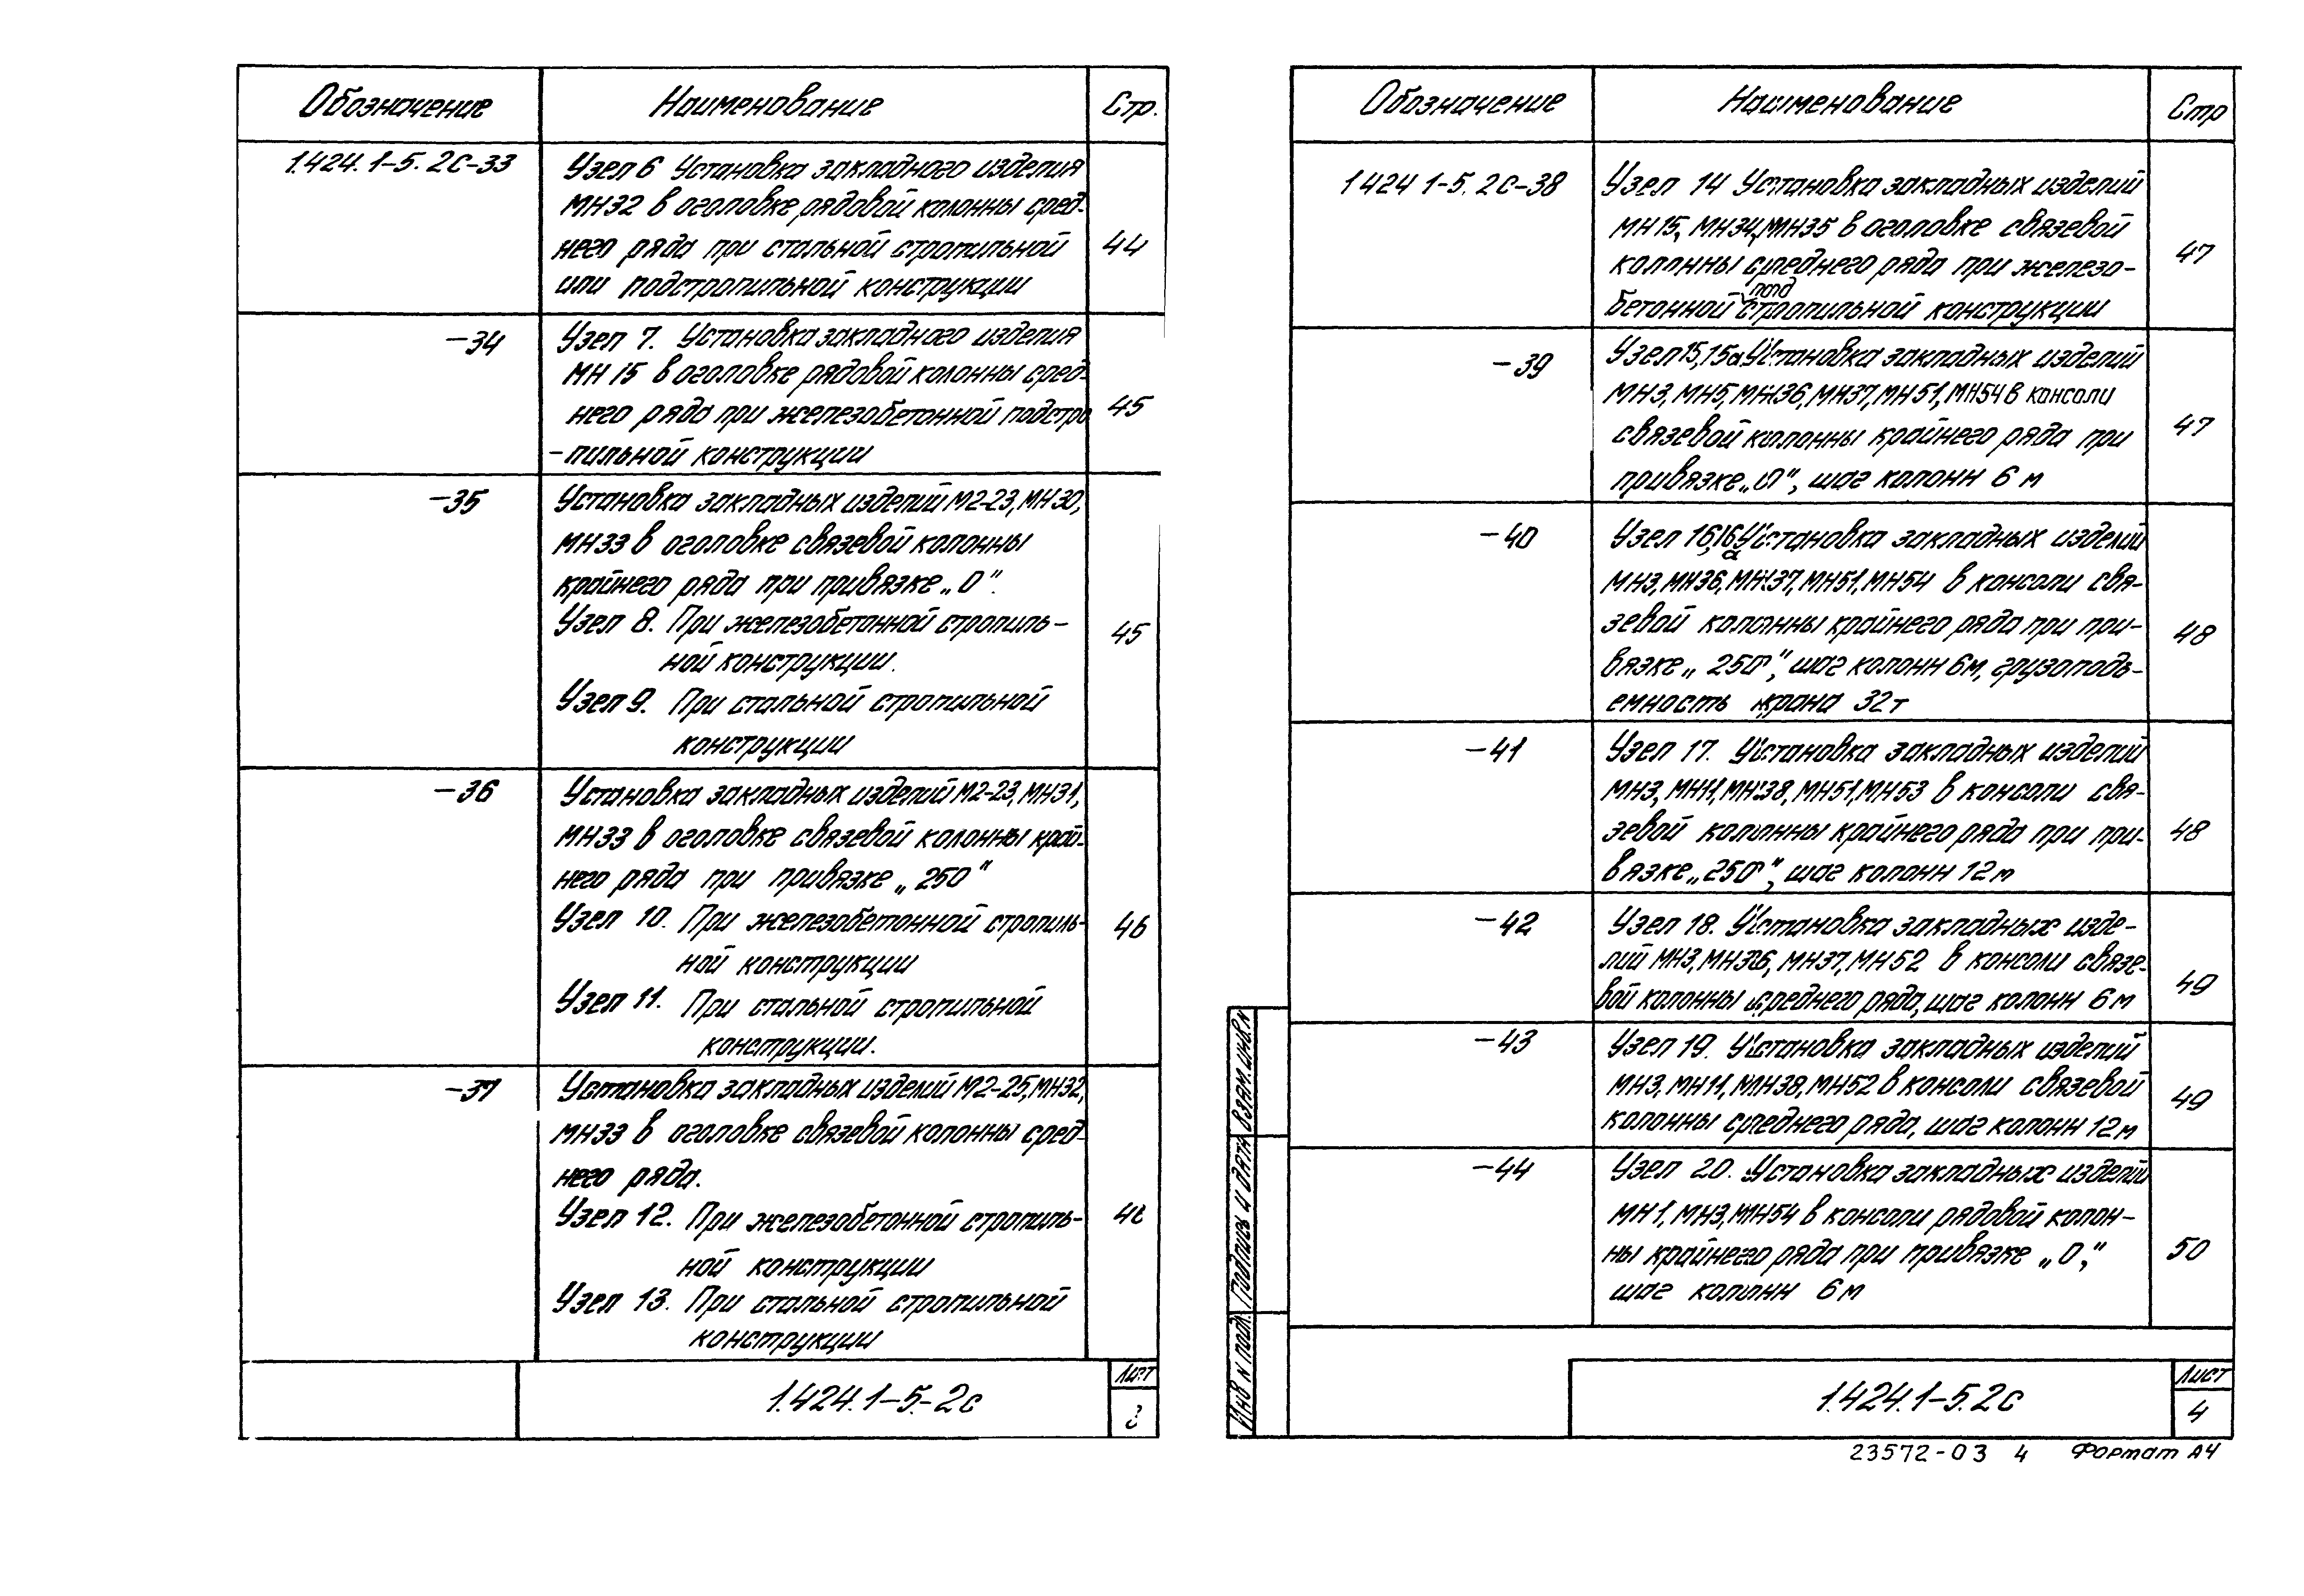 Обозначение Наименование Стр.
1.424.1-5.2С-33 Узел 6 Установка закладного изделия
МН32 в оголовке рядовой колонны сред-
него ряда при стальной стропильной 44
или подстропильной конструкции
-34 Узел 7. Установка закладного изделия
МН 15 в оголовке рядовой колонны сред-
него ряда при железобетонной подстро 45
-пильной конструкции
-35 Установка закладных изделий М2-23, МН30,
МН33 в оголовке связевой колонны
крайнего ряда при привязке „0".
Узел 8. При железобетонной стропиль- 45
ной конструкции.
Узел 9. При стальной стропильной
конструкции
-36 Установка закладных изделий М2-23, МН31,
МН33 в оголовке связевой колонны край-
него ряда при привязке „250"
Узел 10. При железобетонной стропиль- 46
ной конструкции
Узел 11. При стальной стропильной
конструкции.
-37 Установка закладных изделий М2-25, МН32,
МН33 в оголовке связевой колонны сред-
него ряда.
Узел 12. При железобетонной стропиль-
ной конструкции
Узел 13. При стальной стропильной
конструкции
1.424.1-5.-2с Лист
Обозначение Наименование Стр
1 424 1-5. 2С-38 Узел 14 Установка закладных изделий
МН15, МН34, МН35 в оголовке связевой
колонны среднего ряда при железо- 47
бетонной подстропильной конструкции
-39 Узел 15, 15а Установка закладных изделий
МН3, МН5, МН36, МН37, МН51, МН54 в консоли
связевой колонны крайнего ряда при 47
привязке „0", шаг колонн 6 м
-40 Узел 16, 16а Установка закладных изделий
МН3, МН36, МН37, МН51, МН54 в консоли свя-
зевой колонны крайнего ряда при при- 48
вязке „250", шаг колонн 6м, грузоподъ-
емность крана 32т
-41 Узел 17. Установка закладных изделий
МН3, МН11, МН38, МН51, МН53 в консоли свя-
зевой колонны крайнего ряда при при- 48
вязке „250", шаг колонн 12м
-42 Узел 18. Установка закладных изде-
лий МН3, МН36, МН37, МН52 в консоли связе-
вой колонны среднего ряда, шаг колонн 6м 49
-43 Узел 19. Установка закладных изделий
МН3, МН11, МН38, МН52 в консоли связевой 49
колонны среднего ряда, шаг колонн 12м
-44 Узел 20. Установка закладных изделий
МН1, МН3, МН54 в консоли рядовой колон-
ны крайнего ряда при привязке „0", 50
шаг колонн 6м
Взам. инв. N
Подпись и дата
Инв N подл.
1.424.1-5.2с Лист
4
23572-03 4 Формат А4